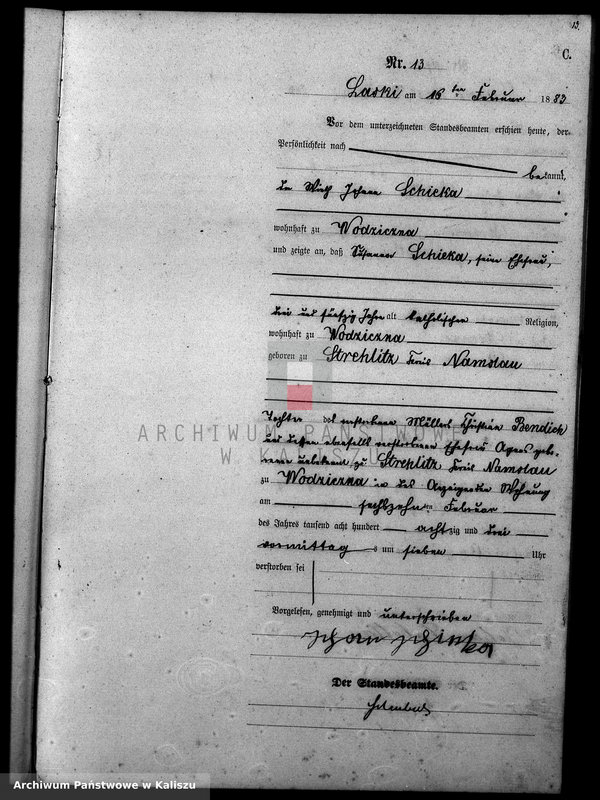 13.
C.
Nr. 13
Laski am 16ten Februar 1883
Vor dem unterzeichneten Standesbeamten erschien heute, der
Persönlichkeit nach
bekannt,
der Wirth Johann Schieka
wohnhaft zu Wodziczna
und zeigte an, daß Susanna Schieka, seine Ehefrau,
drei und fünfzig Jahre alt katholischer Religion,
wohnhaft zu Wodziczna
geboren zu Strehlitz Kreis Namslau
Tochter des verstorbenen Müllers Christian Bendich
und dessen ebenfalls verstorbenen Ehefrau Agnes gebo-
renen unbekannt zu Strehlitz Kreis Namslau
zu Wodziczna in des Anzeigenden Wohnung
am sechszehnten Februar
des Jahres tausend acht hundert achtzig und drei
vormittags um sieben Uhr
verstorben sei
Vorgelesen, genehmigt und unterschrieben
Der Standesbeamte.
ARCHIWUM PAŃSTWOWE
W KALISZU
Archiwum Państwowe w Kaliszu